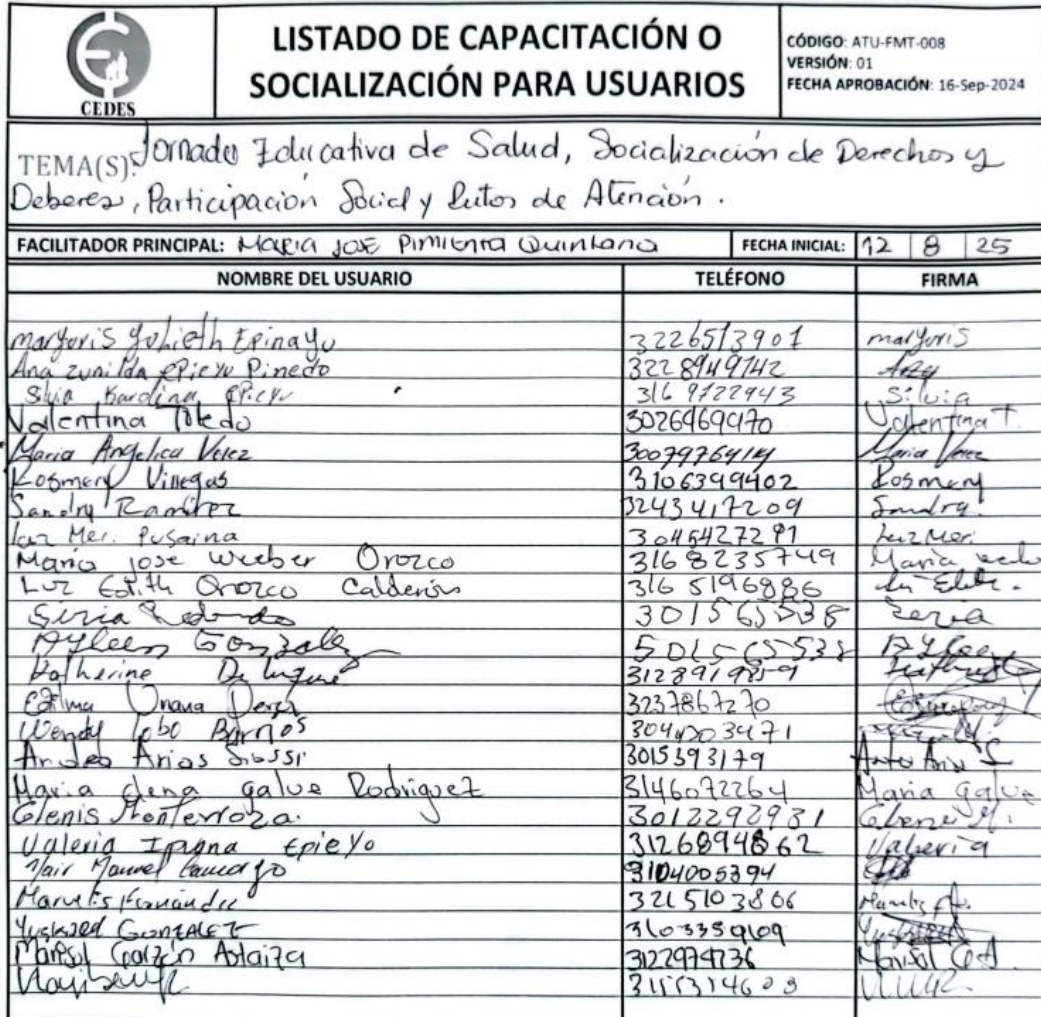 CEDES
LISTADO DE CAPACITACIÓN O
SOCIALIZACIÓN PARA USUARIOS
CÓDIGO: ATU-FMT-008
VERSIÓN: 01
FECHA APROBACIÓN: 16-Sep-2024
TEMA(S): Jornada Educativa de Salud, Socialización de Derechos y
Deberes, Participación Social y Rutas de Atención.
FACILITADOR PRINCIPAL: Maria Jose Pimienta Quintana FECHA INICIAL: 12 8 25
NOMBRE DEL USUARIO TELÉFONO FIRMA
maryoris Yulieth Epinayu 3226513901 maryoris
Ana zunilda ePieyu Pinedo 3228949142
Silvia Karolina ePieyu 316 9722943 Silvia
Valentina Toledo 3026969970 Valentina T.
Maria Angelica Velez 3007976414 Maria Velez
Rosmery Villegas 3106399402 Rosmery
Sandra Ramirez 3243417209 Sandra
Luz Mer. Pusaina 3045427291 Luz Mer.
Maria jose weeber Orozco 3168235749 Maria
Luz Edith Orozco Calderón 316 5196886
Redondo 301565538
Ayleen Gonzalez Ayleen
Katherine De Luque
3237867270
Wendy Lobo Barrios
Arias 3015393179
Maria elena galve Rodriguez 3146072264 Maria galve
Glenis Monterroza. 3012292931
Valeria Ipuana Epieyo 3126894862 Valeria
Yair Manuel Camargo 3104005394
Fernandez 3215103806
GONZALEZ
Marisol Garzón Astaiza 3122974736 Marisol